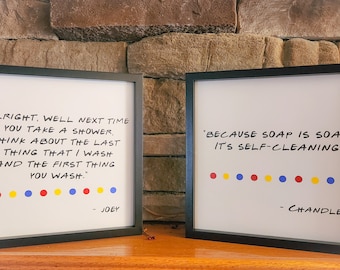 LRIGHT. WELL NEXT TIME
YOU TAKE A SHOWER,
THINK ABOUT THE LAST
THING THAT I WASH
AND THE FIRST THING
YOU WASH."
- JOEY
"BECAUSE SOAP IS SOA
ITS SELF-CLEANING
- CHANDLE